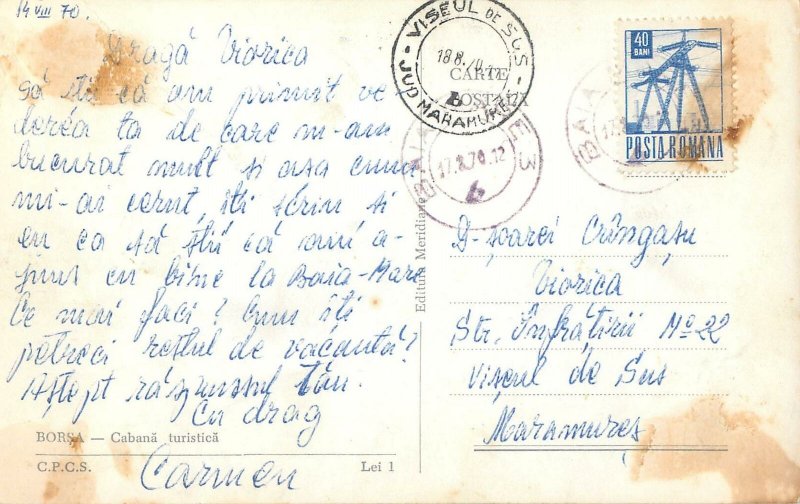 14 VIII 70.
Dragă Viorica
să știi că am primit ve
derea ta de care m-am
bucurat mult și așa cum
mi-ai cerut, îți scriu și
eu ca să știi că am a-
juns cu bine la Baia-Mare
Ce mai faci? Cum îți
petreci restul de vacanță?
Aștept răspunsul tău.
Cu drag
Carmen
BORȘA — Cabană turistică
C.P.C.S. Lei 1
Editura Meridiane
CARTE
POSTALĂ
VISEUL DE SUS
18.8.70
JUD MARAMUREȘ
BAIA MARE 3
17.8.70.12
BAIA
17.
40
BANI
POSTA ROMANA
D-șoarei Crîngașu
Viorica
Str. Înfrățirii No 22
Vișeul de Sus
Maramureș